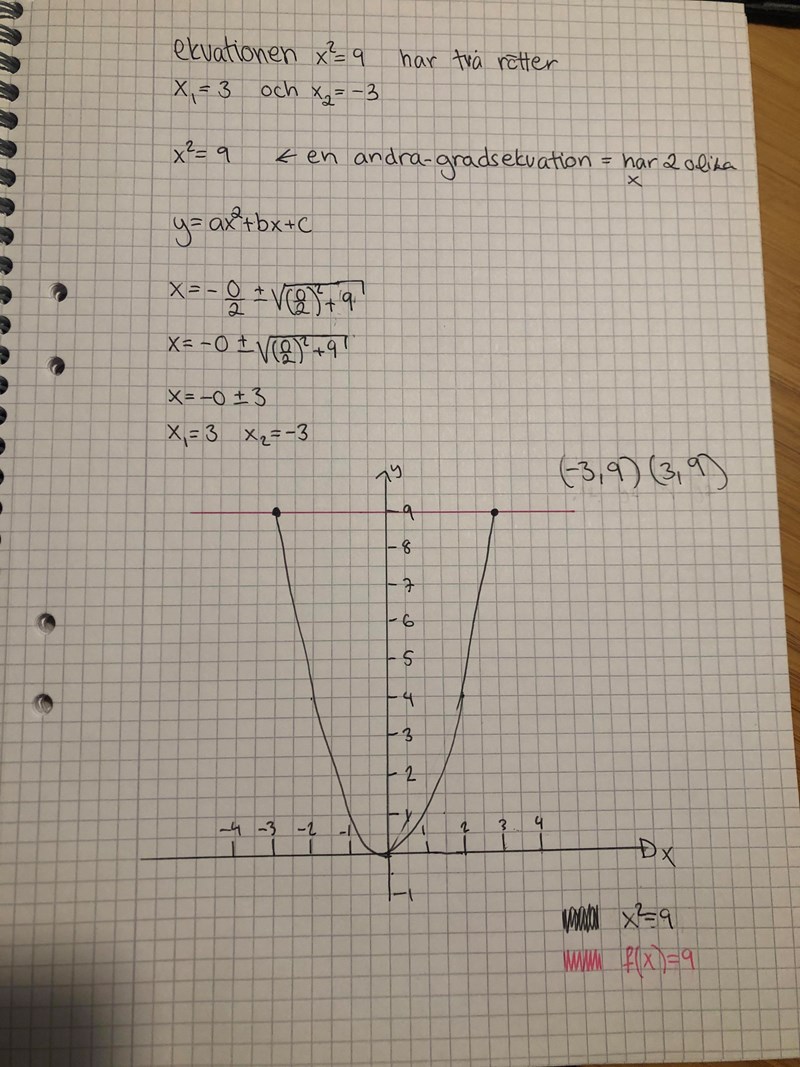 ekvationen x²=9 har två rötter
x₁=3 och x₂=-3
x²=9 ← en andra-gradsekvation = har 2 olika
x
y=ax²+bx+c
x=-0/2 ± √(0/2)²+9
x=-0 ± √(0/2)²+9
x=-0 ± 3
x₁=3 x₂=-3
y (-3,9) (3,9)
9
8
7
6
5
4
3
2
1
-4 -3 -2 -1 1 2 3 4
x
-1
x²=9
f(x)=9